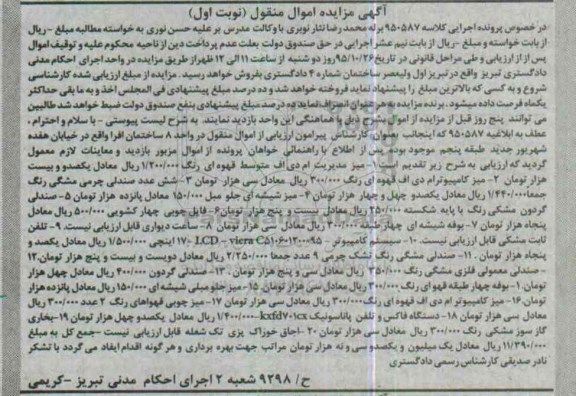 آگهی مزایده اموال منقول (نوبت اول)
در خصوص پرونده اجرایی کلاسه ۹۵۰۵۸۷ برله محمد رضا نثار نوبری با وکالت مدرس بر علیه حسن نوری به خواسته مطالبه مبلغ -ریال
از بابت خواسته و مبلغ -ریال از بابت نیم عشر اجرایی در حق صندوق دولت بعلت عدم پرداخت دین از ناحیه محکوم علیه و توقیف اموال
پس از ارزیابی و طی مراحل قانونی در تاریخ ۹۵/۱۰/۲۶ روز دو شنبه از ساعت ۱۱ الی ۱۲ ظهر از طریق مزایده در واحد اجرای احکام مدنی
دادگستری تبریز واقع در تبریز اول ولیعصر ساختمان شماره ۴ دادگستری بفروش خواهد رسید . مزایده از مبلغ ارزیابی شده کارشناسی
شروع و به کسی که بالاترین مبلغ را پیشنهاد نماید فروخته خواهد شد و ده درصد مبلغ پیشنهادی فی المجلس اخذ و به ما بقی حداکثر
یکماه فرصت داده میشود . برنده مزایده به هر عنوان انصراف نماید ده درصد مبلغ پیشنهادی بنفع صندوق دولت ضبط خواهد شد طالبین
می توانند پنج روز قبل از مزایده از اموال بشرح ذیل با هماهنگی این واحد بازدید نمایند. به شرح لیست پیوستی - با سلام و احترام ،
عطف به ابلاغیه ۹۵۰۵۸۷ که اینجانب بعنوان کارشناس پیرامون ارزیابی از اموال منقول در واحد ۸ ساختمان افرا واقع در خیابان هفده
شهریور جدید طبقه پنجم موجود بوده پس از اطلاع با راهنمائی خواهان پرونده از اموال مزبور بازدید و معاینات لازم معمول
گردید که ارزیابی به شرح زیر تقدیم است ۱- میز مدیریت ام دی اف متوسط قهوه ای رنگ ۱/۲۰۰/۰۰۰ ریال معادل یکصدو و بیست
هزار تومان ۲- میز کامپیوتر ام دی اف قهوه ای رنگ ۳۰۰/۰۰۰ ریال معادل سی هزار تومان ۳- شش عدد صندلی چرمی مشگی رنگ
جمعا ۱/۴۴۰/۰۰۰ ریال معادل یکصدو چهل و چهار هزار تومان ۴- میز شیشه ای جلو مبل ۱۵۰/۰۰۰ ریال معادل پانزده هزار تومان ۵- صندلی
گردون مشکی رنگ با پایه شکسته ۲۵۰/۰۰۰ ریال معادل بیست و پنج هزار تومان ۶- فایل چوبی چهار کشویی ۵۰۰/۰۰۰ ریال معادل
پنجاه هزار تومان ۷- بوفه شیشه ای چهار طبقه ۳۰۰/۰۰۰ ریال معادل سی هزار تومان ۸- ساعت دیواری قابل ارزیابی نیست. ۹- تلفن
ثابت مشکی قابل ارزیابی نیست. ۱۰- سیستم کامپیوتر LCD – viera C5106-120-95- ۱۷ اینچی ۱/۵۰۰/۰۰۰ ریال معادل یکصد و
پنجاه هزار تومان . ۱۱- صندلی مشگی رنگ تشک چرمی ۹ عدد جمعا ۲/۲۵۰/۰۰۰ ریال معادل دویست و بیست و پنج هزار تومان. ۱۲
- صندلی معمولی فلزی مشگی رنگ ۳۵۰/۰۰۰ ریال معادل سی و پنج هزار تومان . ۱۳- صندلی گردون ۴۰۰/۰۰۰ ریال معادل چهل هزار
تومان ۱- بوفه چهار طبقه قهوه ای رنگ ۳۰۰/۰۰۰ ریال معادل سی هزار تومان. ۱۵- میز جلو مبلی شیشه ای ۱۵۰/۰۰۰ ریال معادل پانزده هزار
تومان. ۱۶- میز کامپیوتر ام دی اف قهوه ای رنگ ۳۰۰/۰۰۰ ریال معادل سی هزار تومان ۱۷- میز چوبی قهوهای رنگ ۲ عدد ۳۰۰/۰۰۰ ریال
معادل سی هزار تومان ۱۸- دستگاه فاکس و تلفن پاناسونیک kxfd701cx ۱/۴۰۰/۰۰۰ ریال معادل یکصدو چهل هزار تومان ۱۹- بخاری
گاز سوز مشکی رنگ ۳۰۰/۰۰۰ ریال معادل سی هزار تومان ۲۰- اجاق خوراک پزی تک شعله قابل ارزیابی نیست - جمع کل به مبلغ
۱۱/۳۹۰/۰۰۰ ریال معادل یک میلیون و یکصدو سی و نه هزار تومان مراتب جهت بهره برداری و هر گونه اقدام ایفاد می گردد با تشکر
نادر صدیقی کارشناس رسمی دادگستری
ح/ ۹۲۹۸ شعبه ۲ اجرای احکام مدنی تبریز - کریمی